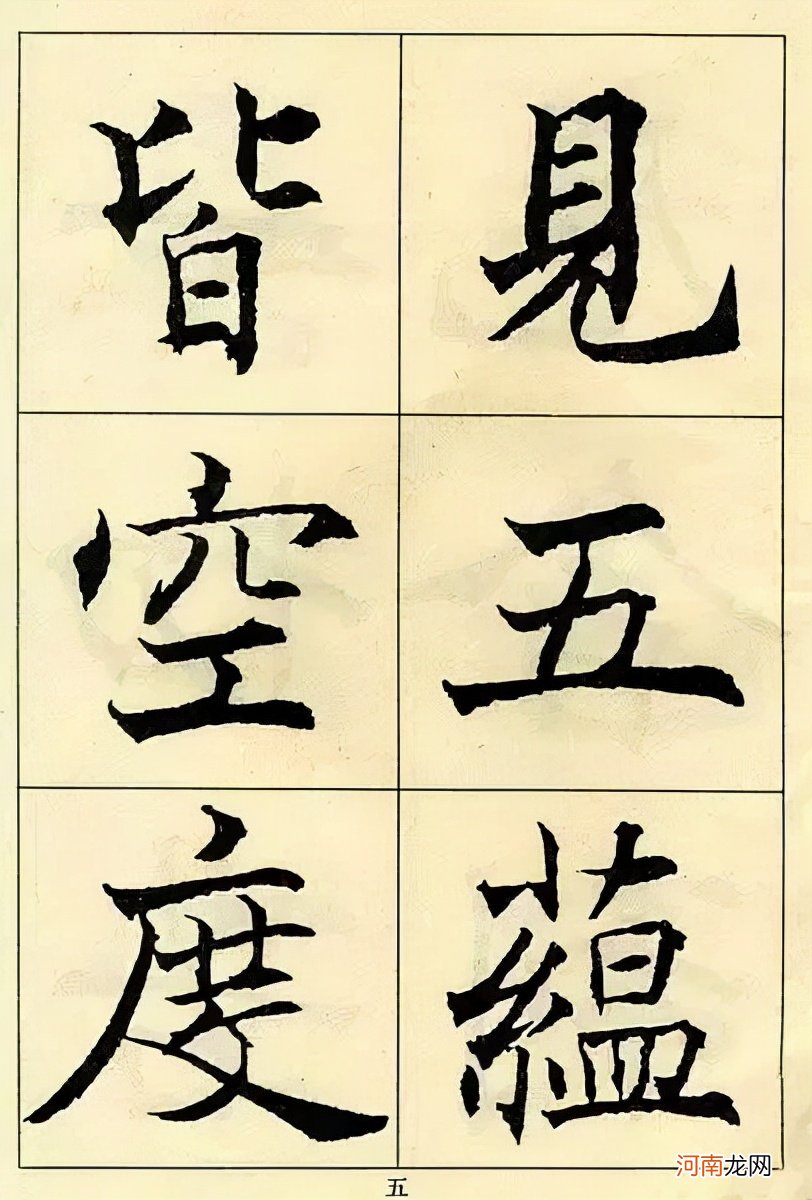 見五蘊
皆空度
五
河南龙网